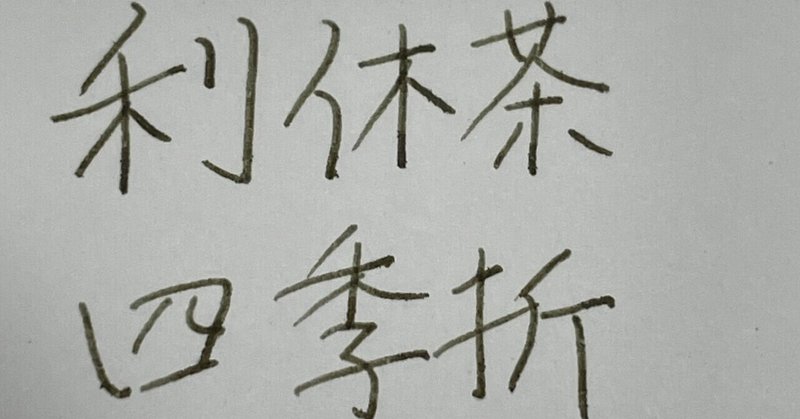 利休茶
四季折